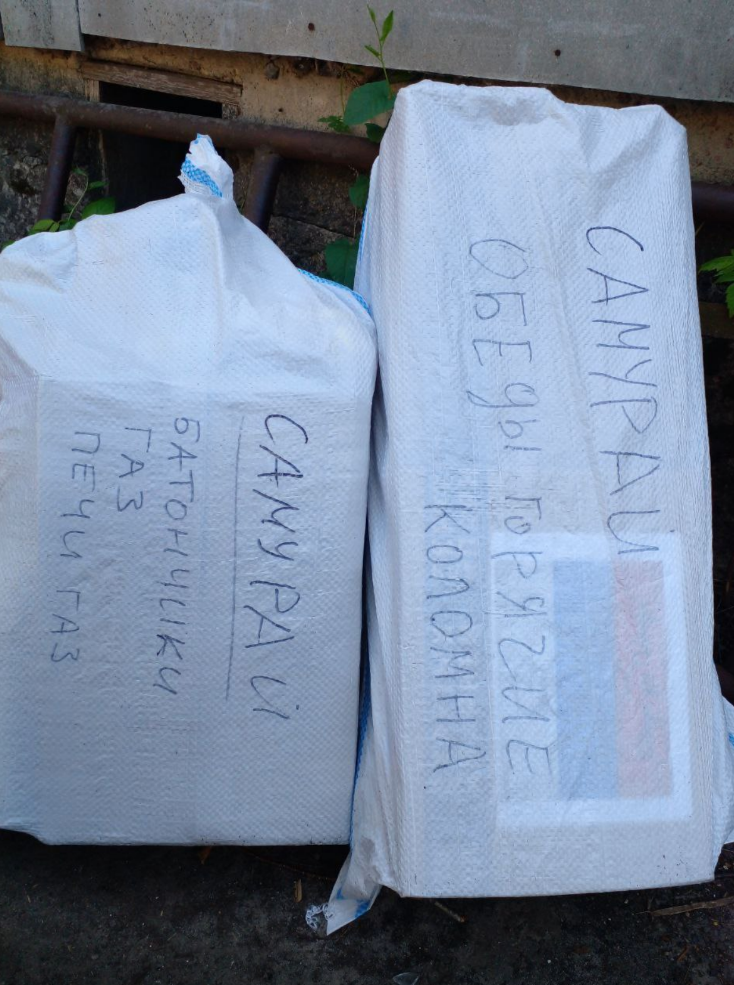 САМУРАЙ
БАТОНЧИКИ
ГАЗ
ПЕЧИ ГАЗ
САМУРАЙ
ОБЕДЫ ГОРЯЧИЕ
КОЛОМНА